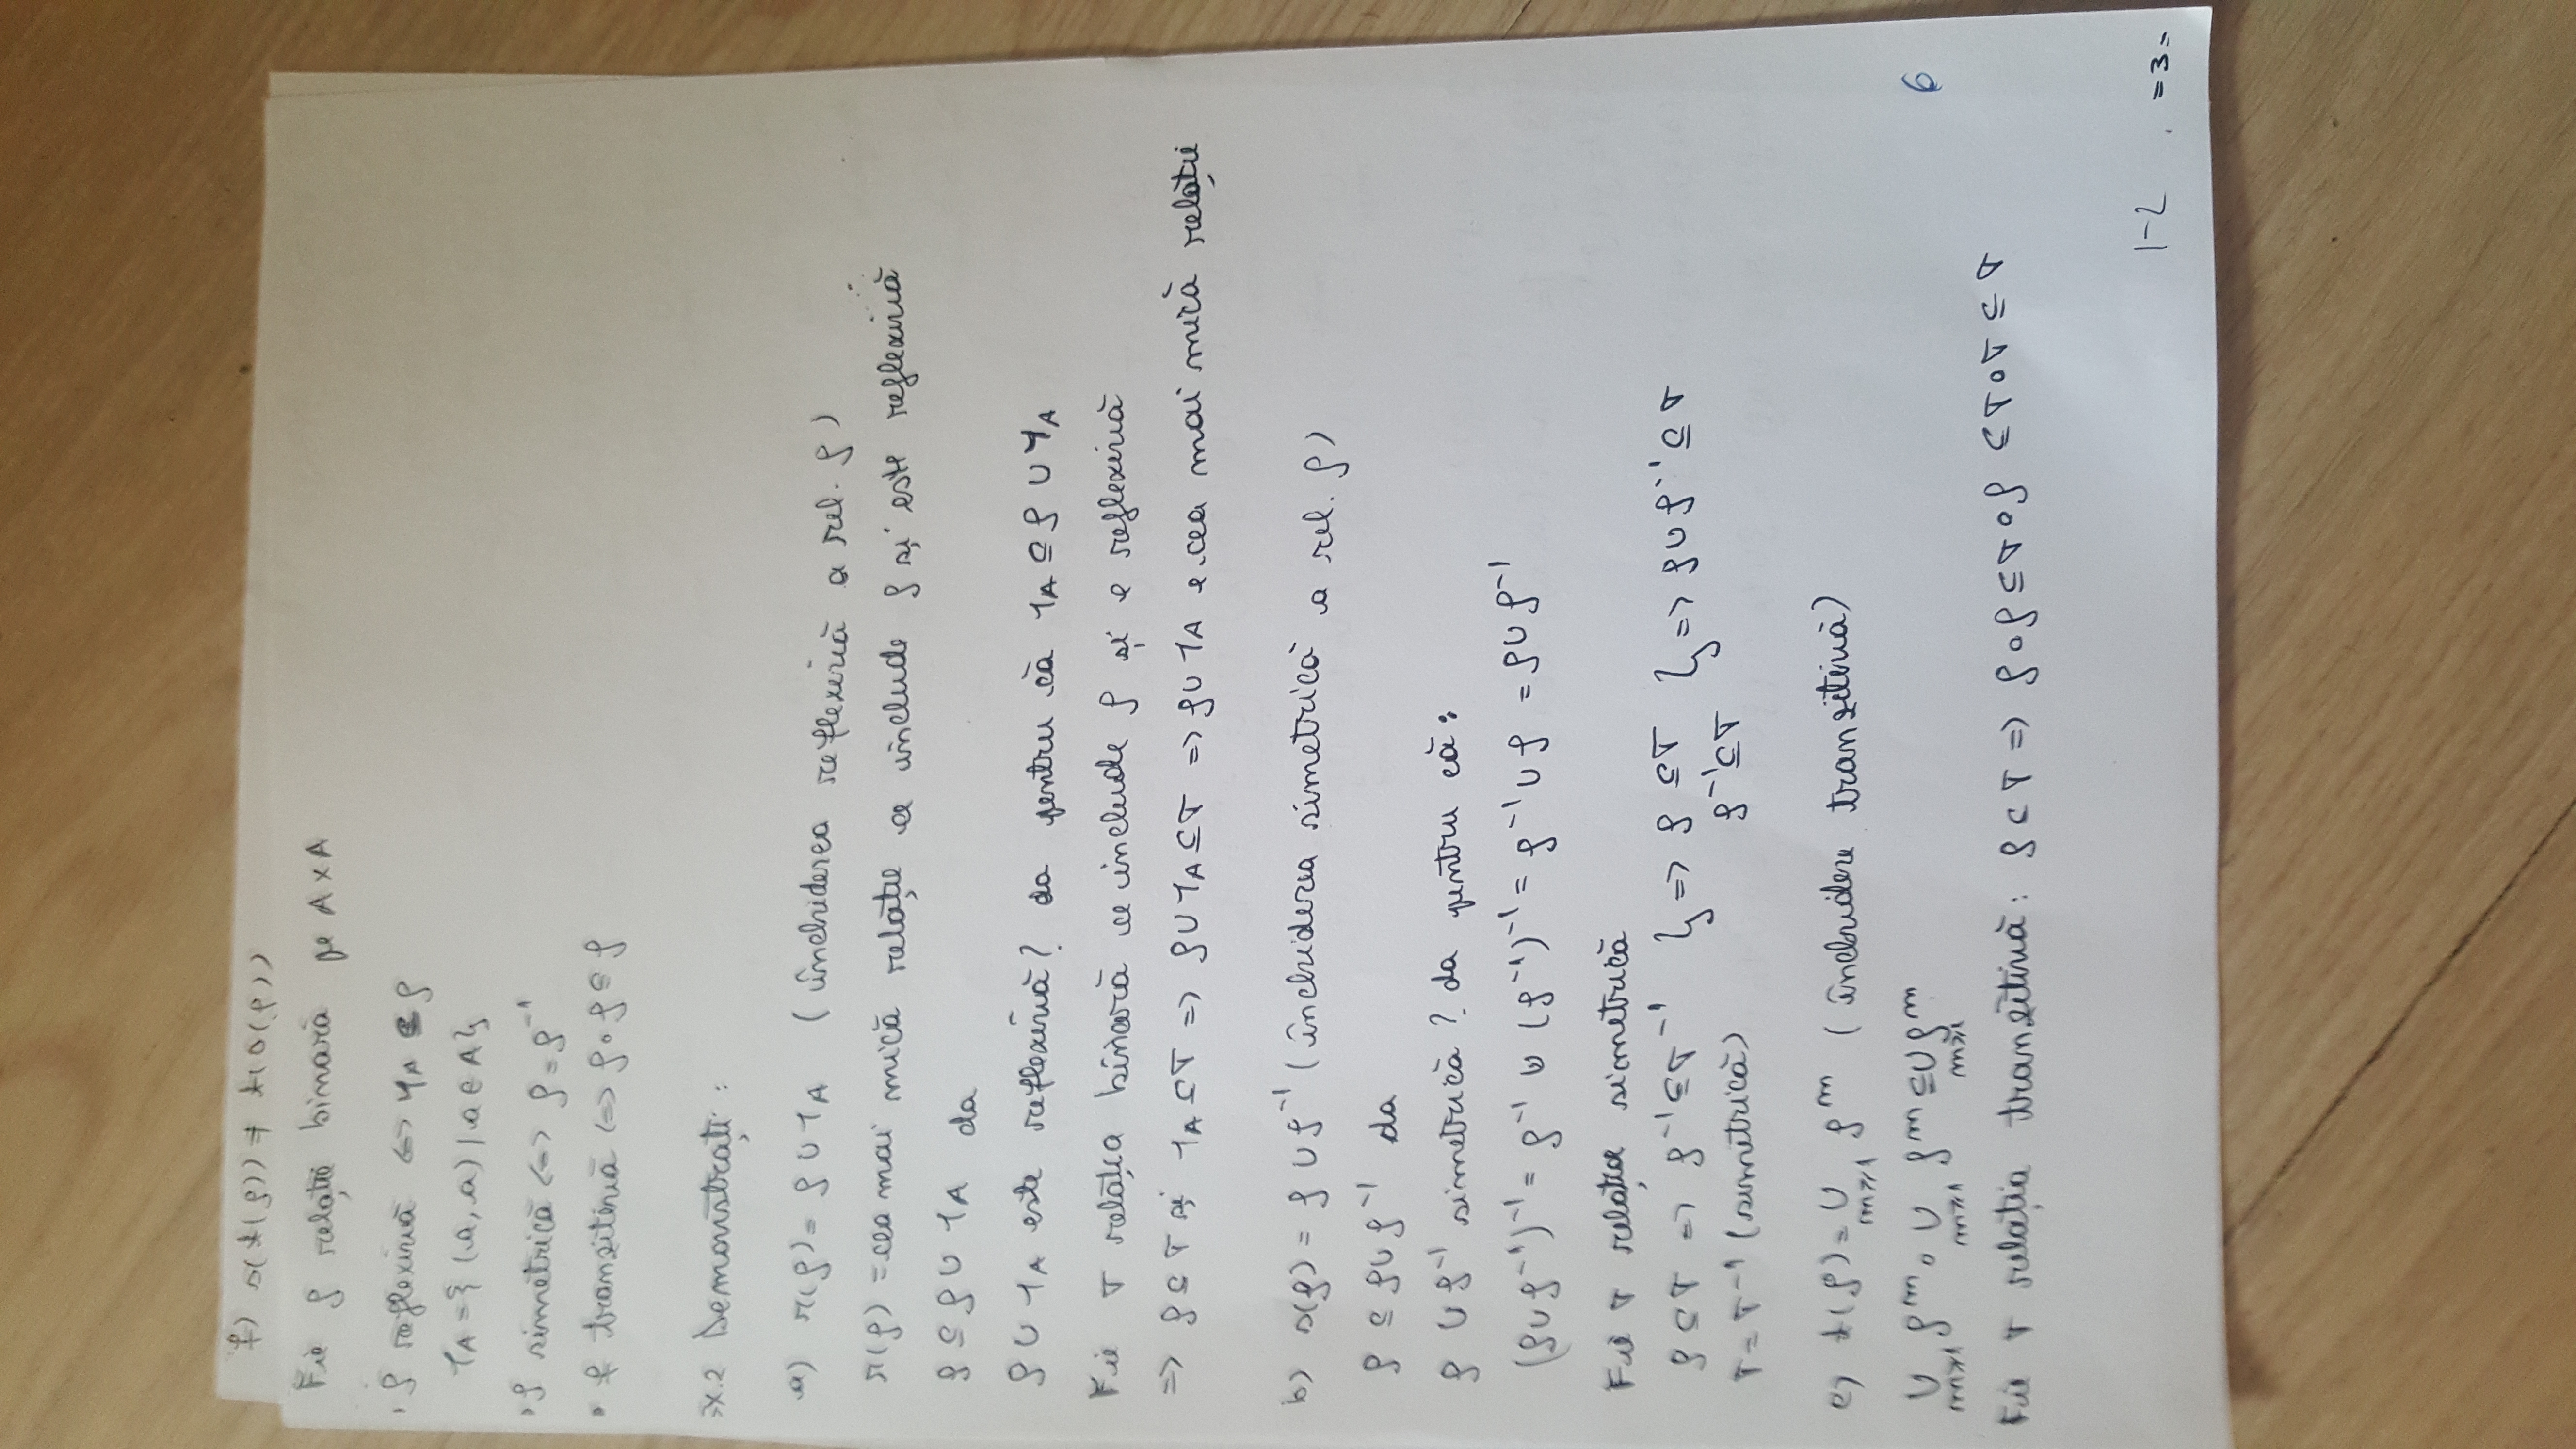 f) s(t(ρ)) ≠ t(s(ρ))
Fie ρ relație binară pe A×A
· ρ reflexivă <=> 1A ⊆ ρ
1A = {(a,a) | a∈A}
· ρ simetrică <=> ρ = ρ⁻¹
· ρ tranzitivă <=> ρ∘ρ ⊆ ρ
Ex.2 Demonstrați:
a) r(ρ) = ρ ∪ 1A (închiderea reflexivă a rel. ρ)
r(ρ) = cea mai mică relație ce include ρ și este reflexivă
ρ ⊆ ρ ∪ 1A da
ρ ∪ 1A este reflexivă? da pentru că 1A ⊆ ρ ∪ 1A
Fie τ relația binară ce include ρ și e reflexivă
=> ρ ⊆ τ și 1A ⊆ τ => ρ ∪ 1A ⊆ τ => ρ ∪ 1A e cea mai mică relație
b) s(ρ) = ρ ∪ ρ⁻¹ (închiderea simetrică a rel. ρ)
ρ ⊆ ρ ∪ ρ⁻¹ da
ρ ∪ ρ⁻¹ simetrică? da pentru că:
(ρ ∪ ρ⁻¹)⁻¹ = ρ⁻¹ ∪ (ρ⁻¹)⁻¹ = ρ⁻¹ ∪ ρ = ρ ∪ ρ⁻¹
Fie τ relația simetrică
ρ ⊆ τ => ρ⁻¹ ⊆ τ⁻¹ } => ρ ⊆ τ } => ρ ∪ ρ⁻¹ ⊆ τ
τ = τ⁻¹ (simetrică) ρ⁻¹ ⊆ τ
c) t(ρ) = ∪ m≥1 ρᵐ (închidere tranzitivă)
∪ m≥1 ρᵐ ∘ ∪ m≥1 ρᵐ ⊆ ∪ m≥1 ρᵐ
6
Fie τ relația tranzitivă: ρ ⊂ τ => ρ∘ρ ⊆ τ∘ρ ⊆ τ∘τ ⊆ τ
1-2 =3=